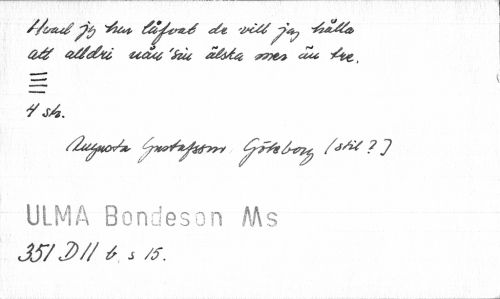 Hvad jag har låfvat de vill jag hålla
att alldri nån'sin älska mer än tre.
4 str.
Augusta Gustafsson Göteborg [stil?]
ULMA Bondeson Ms
351 D II b, s 15.